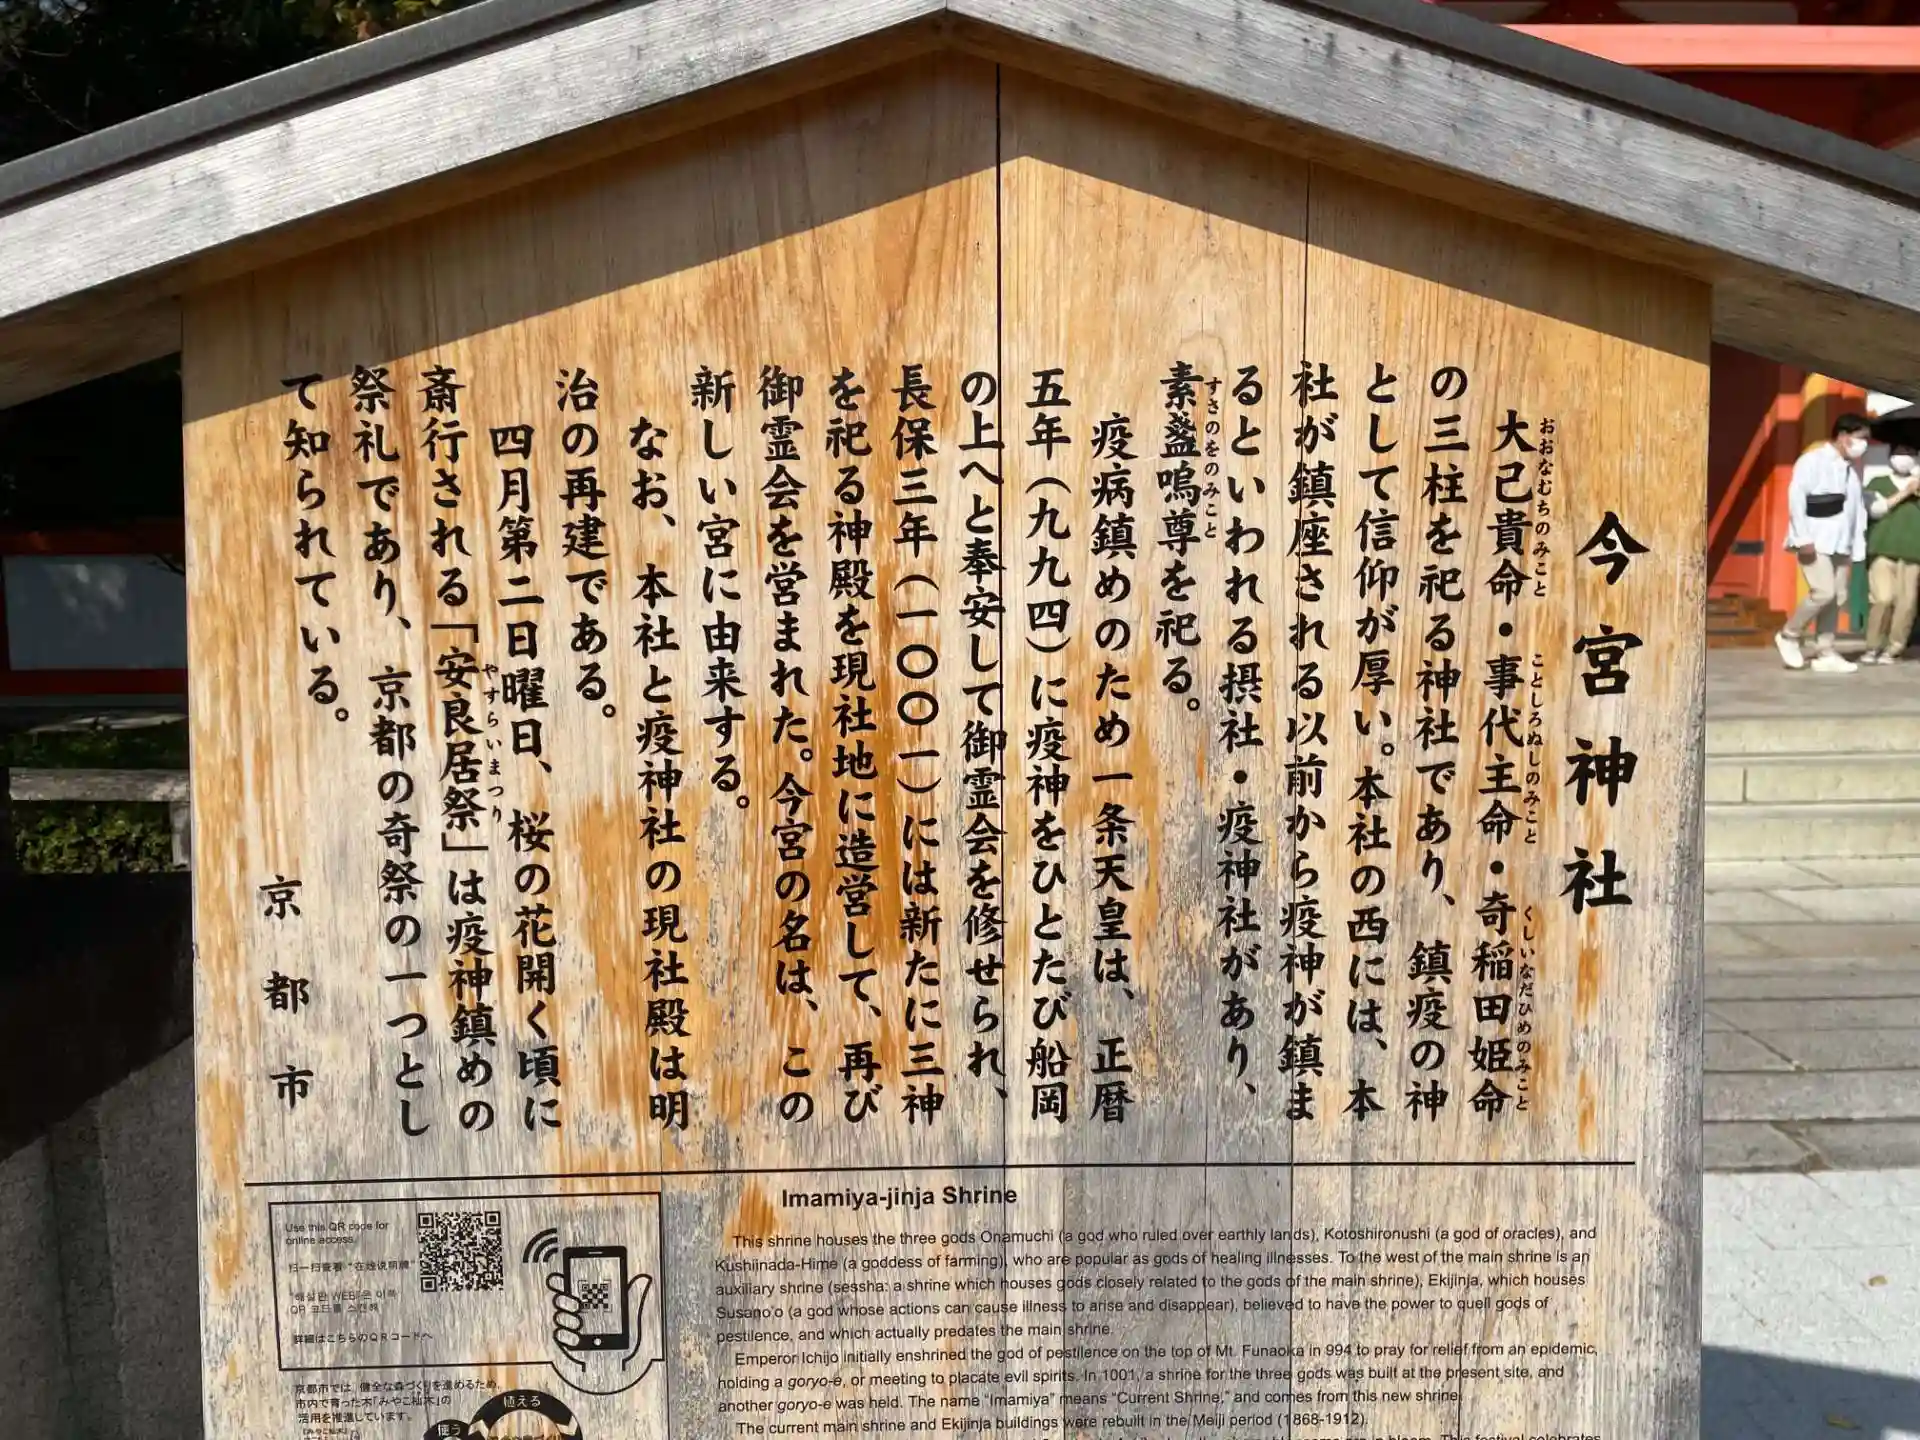 今宮神社
大己貴命・事代主命・奇稲田姫命
おおなむちのみこと
ことしろぬしのみこと
くしいなだひめのみこと
の三柱を祀る神社であり、鎮疫の神
として信仰が厚い。本社の西には、本
社が鎮座される以前から疫神が鎮ま
るといわれる摂社・疫神社があり、
素盞嗚尊を祀る。
すさのをのみこと
疫病鎮めのため一条天皇は、正暦
五年（九九四）に疫神をひとたび船岡
の上へと奉安して御霊会を修せられ、
長保三年（一〇〇一）には新たに三神
を祀る神殿を現社地に造営して、再び
御霊会を営まれた。今宮の名は、この
新しい宮に由来する。
なお、本社と疫神社の現社殿は明
治の再建である。
四月第二日曜日、桜の花開く頃に
斎行される「安良居祭」は疫神鎮めの
やすらいまつり
祭礼であり、京都の奇祭の一つとし
て知られている。
京都市
Imamiya-jinja Shrine
This shrine houses the three gods Onamuchi (a god who ruled over earthly lands), Kotoshironushi (a god of oracles), and
Kushiinada-Hime (a goddess of farming), who are popular as gods of healing illnesses. To the west of the main shrine is an
auxiliary shrine (sessha: a shrine which houses gods closely related to the gods of the main shrine), Ekijinja, which houses
Susano'o (a god whose actions can cause illness to arise and disappear), believed to have the power to quell gods of
pestilence, and which actually predates the main shrine.
Emperor Ichijo initially enshrined the god of pestilence on the top of Mt. Funaoka in 994 to pray for relief from an epidemic,
holding a goryo-e, or meeting to placate evil spirits. In 1001, a shrine for the three gods was built at the present site, and
another goryo-e was held. The name "Imamiya" means "Current Shrine," and comes from this new shrine.
The current main shrine and Ekijinja buildings were rebuilt in the Meiji period (1868-1912).
Use this QR code for
online access.
扫一扫查看 "在线说明牌"
"해설판 WEB"은 이쪽
QR 코드를 스캔해
詳細はこちらのQRコードへ
京都市では、健全な森づくりを進めるため、
市内で育った木「みやこ杣木」の
活用を推進しています。
植える
使う